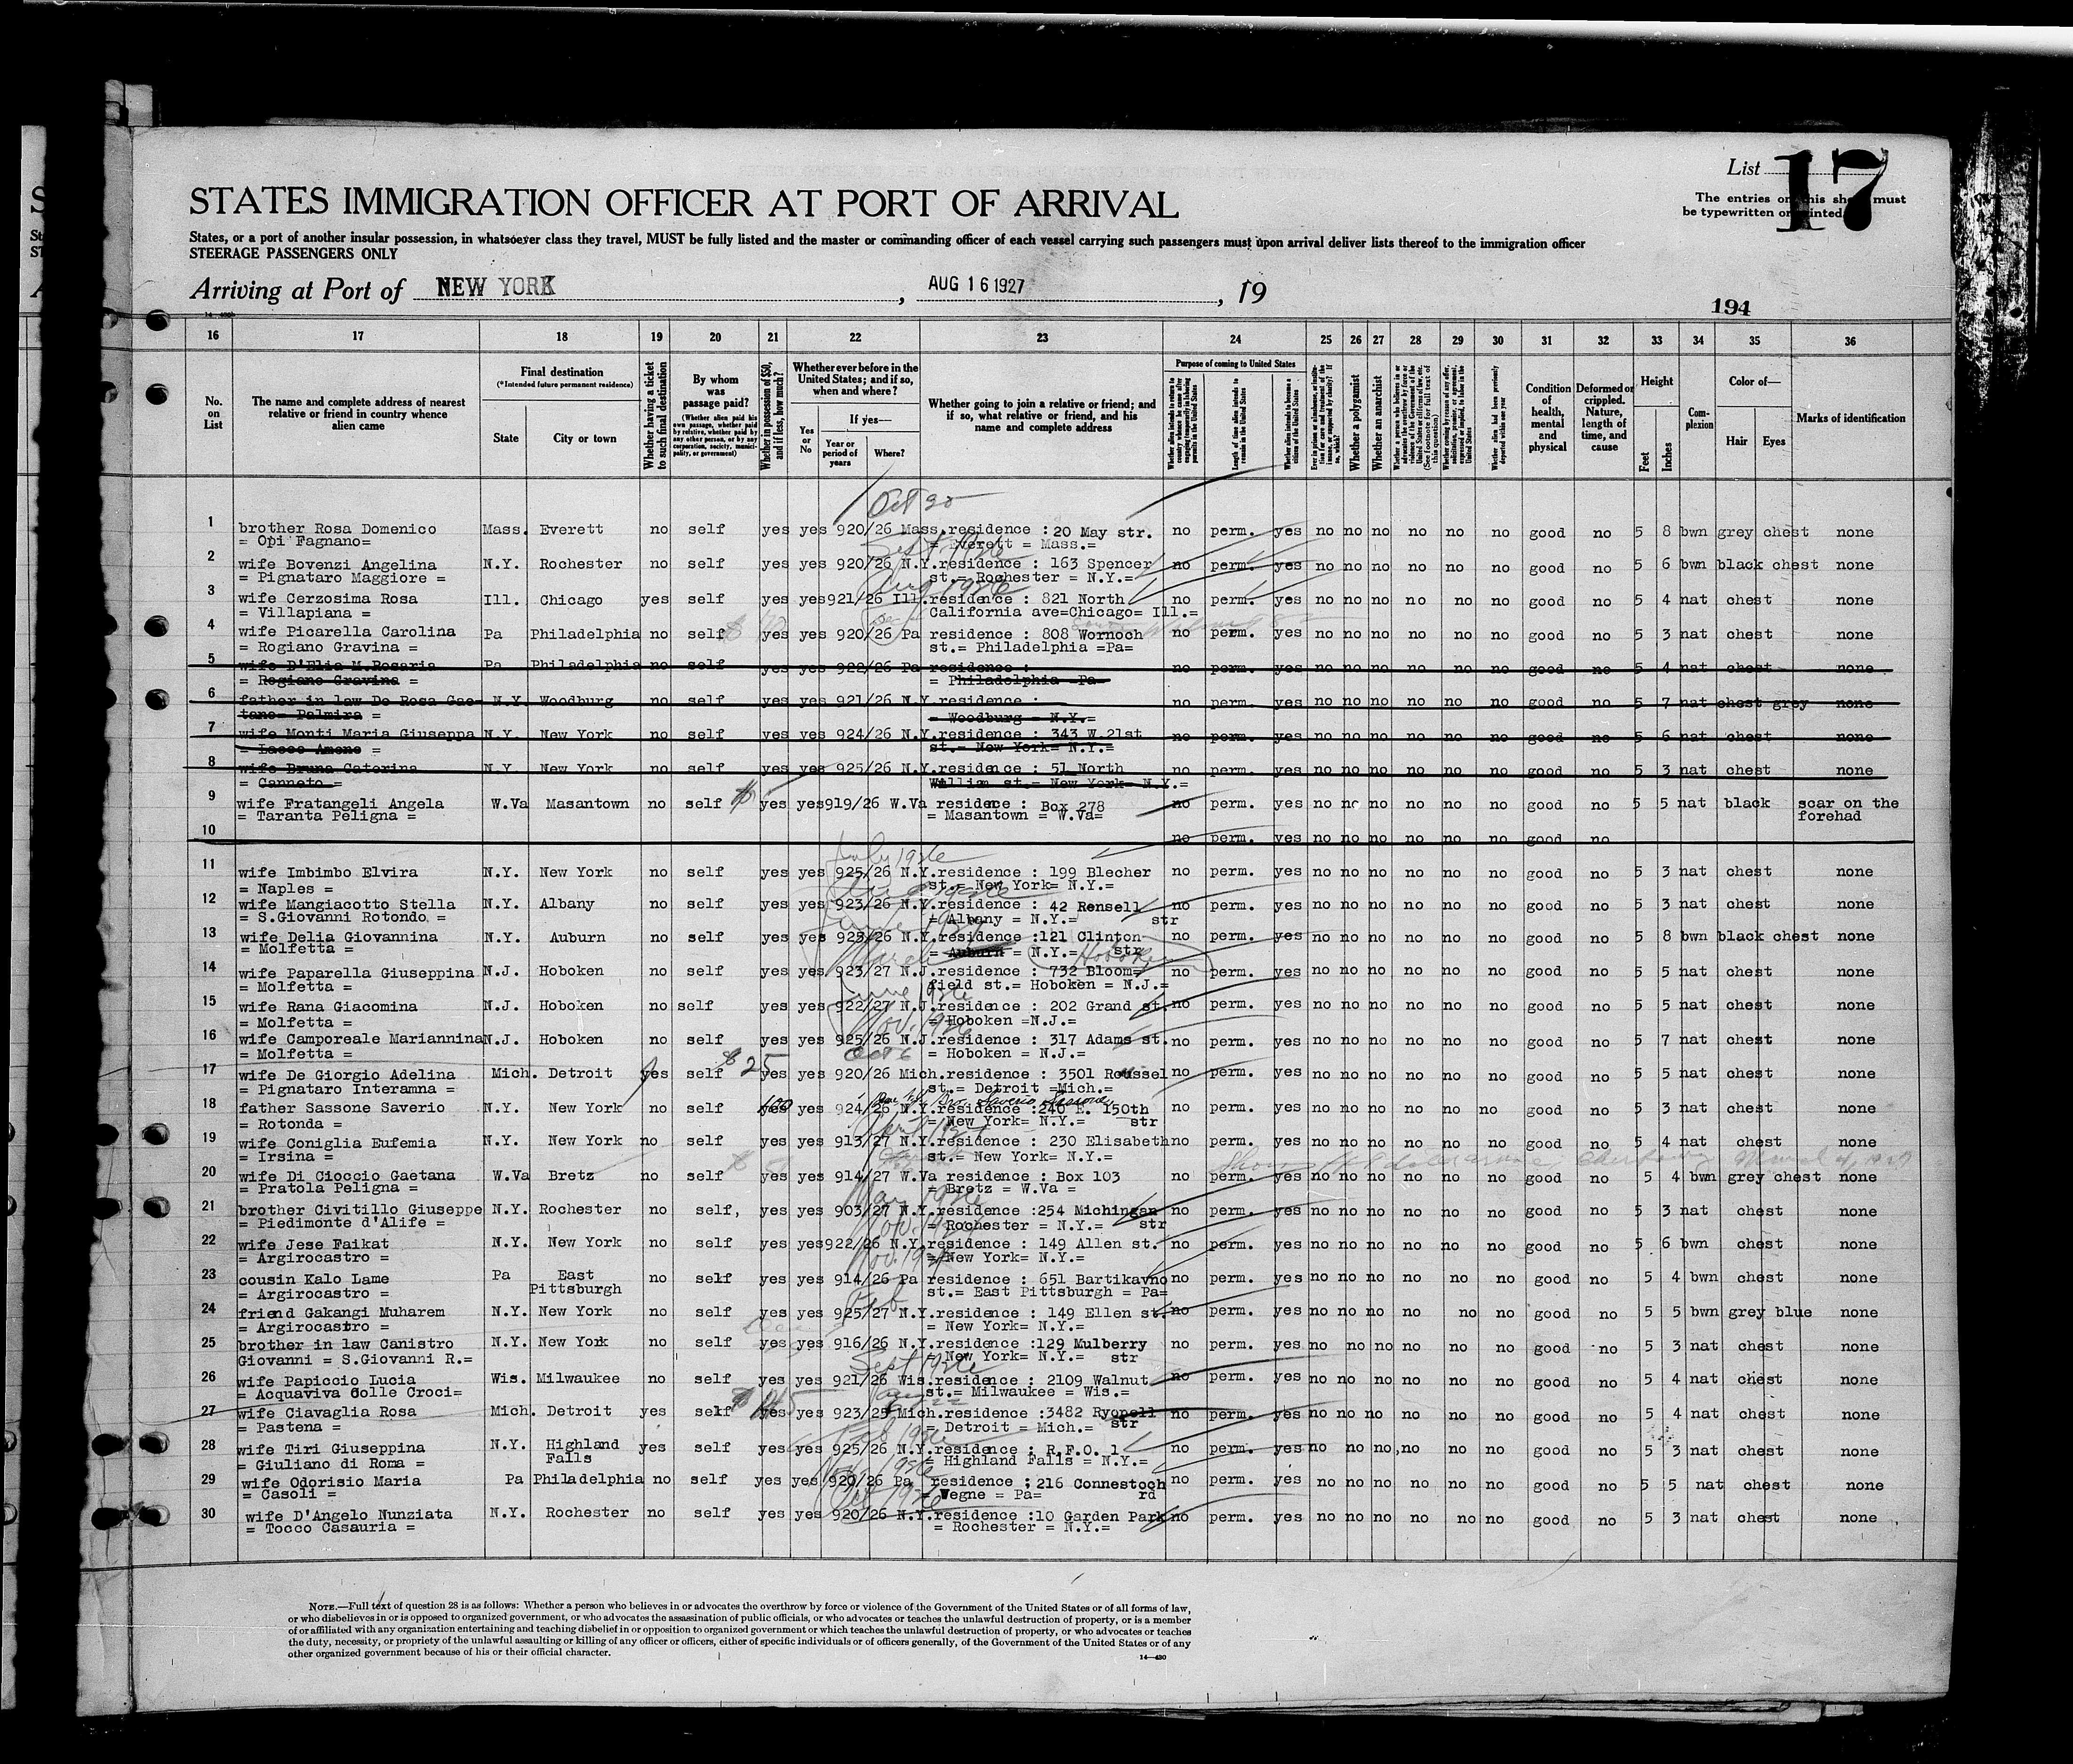 List 17
The entries on this sheet must
be typewritten or printed
STATES IMMIGRATION OFFICER AT PORT OF ARRIVAL
States, or a port of another insular possession, in whatsoever class they travel, MUST be fully listed and the master or commanding officer of each vessel carrying such passengers must upon arrival deliver lists thereof to the immigration officer
STEERAGE PASSENGERS ONLY
Arriving at Port of NEW YORK, AUG 16 1927, 19
194
16 17 18 19 20 21 22 23 24 25 26 27 28 29 30 31 32 33 34 35 36
No. on List
The name and complete address of nearest relative or friend in country whence alien came
Final destination
(*Intended future permanent residence)
State
City or town
Whether having a ticket to such final destination
By whom was passage paid?
(Whether alien paid his own passage, whether paid by relative, whether paid by any other person, or by any corporation, society, municipality, or government)
Whether in possession of $50, and if less, how much?
Whether ever before in the United States; and if so, when and where?
Yes or No
If yes—
Year or period of years
Where?
Whether going to join a relative or friend; and if so, what relative or friend, and his name and complete address
Purpose of coming to United States
Length of time alien intends to remain in the United States
Whether alien intends to become a citizen of the United States
Whether a polygamist
Whether an anarchist
Condition of health, mental and physical
Deformed or crippled. Nature, length of time, and cause
Height
Feet
Inches
Complexion
Color of—
Hair
Eyes
Marks of identification
1 brother Rosa Domenico Mass. Everett no self yes yes 920/26 Mass.residence : 20 May str. no perm. yes no no no no no no good no 5 8 bwn grey chest none
= Opi Fagnano= = Everett = Mass.=
2 wife Bovenzi Angelina N.Y. Rochester no self yes yes 920/26 N.Y.residence : 163 Spencer no perm. yes no no no no no no good no 5 6 bwn black chest none
= Pignataro Maggiore = st.= Rochester = N.Y.=
3 wife Cerzosima Rosa Ill. Chicago yes self yes yes 921/26 Ill.residence : 821 North no perm. yes no no no no no no good no 5 4 nat chest none
= Villapiana = California ave=Chicago= Ill.=
4 wife Picarella Carolina Pa Philadelphia no self yes yes 920/26 Pa residence : 808 Wornoch no perm. yes no no no no no no good no 5 3 nat chest none
= Rogiano Gravina = st.= Philadelphia =Pa=
5 wife D'Elia M.Rosaria Pa Philadelphia no self yes yes 922/26 Pa residence : no perm. yes no no no no no no good no 5 4 nat chest none
= Rogiano Gravina = = Philadelphia =Pa=
6 father in law De Rosa Gae- N.Y. Woodburg no self yes yes 921/26 N.Y.residence : no perm. yes no no no no no no good no 5 7 nat chest grey none
tano= Palmira = = Woodburg = N.Y.=
7 wife Monti Maria Giuseppa N.Y. New York no self yes yes 924/26 N.Y.residence : 343 W.21st no perm. yes no no no no no no good no 5 6 nat chest none
= Lacco Ameno = st.= New York= N.Y.=
8 wife Bruna Caterina N.Y. New York no self yes yes 925/26 N.Y.residence : 51 North no perm. yes no no no no no no good no 5 3 nat chest none
= Canneto = William st.= New York= N.Y.=
9 wife Fratangeli Angela W.Va Masantown no self yes yes 919/26 W.Va residence : Box 278 no perm. yes no no no no no no good no 5 5 nat black scar on the
= Taranta Peligna = = Masantown = W.Va= forehad
10 no perm. yes no no no no no no good no
11 wife Imbimbo Elvira N.Y. New York no self yes yes 925/26 N.Y.residence : 199 Blecher no perm. yes no no no no no no good no 5 3 nat chest none
= Naples = st.= New York= N.Y.=
12 wife Mangiacotto Stella N.Y. Albany no self yes yes 923/26 N.Y.residence : 42 Rensell no perm. yes no no no no no no good no 5 3 nat chest none
= S.Giovanni Rotondo = = Albany = N.Y.= str
13 wife Delia Giovannina N.Y. Auburn no self yes yes 925/26 N.Y.residence :121 Clinton no perm. yes no no no no no no good no 5 8 bwn black chest none
= Molfetta = = Auburn = N.Y.= str Hoboken
14 wife Paparella Giuseppina N.J. Hoboken no self yes yes 923/27 N.J.residence : 732 Bloom= no perm. yes no no no no no no good no 5 5 nat chest none
= Molfetta = field st.= Hoboken = N.J.=
15 wife Rana Giacomina N.J. Hoboken no self yes yes 922/27 N.J.residence : 202 Grand st. no perm. yes no no no no no no good no 5 5 nat chest none
= Molfetta = = Hoboken =N.J.=
16 wife Camporeale Mariannina N.J. Hoboken no self yes yes 925/26 N.J.residence : 317 Adams st. no perm. yes no no no no no no good no 5 7 nat chest none
= Molfetta = = Hoboken = N.J.=
17 wife De Giorgio Adelina Mich. Detroit yes self $25 yes yes 920/26 Mich.residence : 3501 Roussel no perm. yes no no no no no no good no 5 5 nat chest none
= Pignataro Interamna = st.= Detroit =Mich.=
18 father Sassone Saverio N.Y. New York no self yes 100 yes 924/26 N.Y.residence :240 E. 150th no perm. yes no no no no no no good no 5 3 nat chest none
= Rotonda = = New York= N.Y.= str
19 wife Coniglia Eufemia N.Y. New York no self yes yes 913/27 N.Y.residence : 230 Elisabeth no perm. yes no no no no no no good no 5 4 nat chest none
= Irsina = st.= New York= N.Y.=
20 wife Di Cioccio Gaetana W.Va Bretz no self yes yes 914/27 W.Va residence : Box 103 no perm. yes no no no no no no good no 5 4 bwn grey chest none
= Pratola Peligna = = Bretz = W.Va =
21 brother Civitillo Giuseppe N.Y. Rochester no self, yes yes 903/27 N.Y.residence :254 Michingan no perm. yes no no no no no no good no 5 3 nat chest none
= Piedimonte d'Alife = = Rochester = N.Y.= str
22 wife Jese Faikat N.Y. New York no self yes yes 922/26 N.Y.residence : 149 Allen st. no perm. yes no no no no no no good no 5 6 bwn chest none
= Argirocastro = = New York= N.Y.=
23 cousin Kalo Lame Pa East no self yes yes 914/26 Pa residence : 651 Bartikavno no perm. yes no no no no no no good no 5 4 bwn chest none
= Argirocastro = Pittsburgh st.= East Pittsburgh = Pa=
24 friend Gakangi Muharem N.Y. New York no self yes yes 925/27 N.Y.residence : 149 Ellen st. no perm. yes no no no no no no good no 5 5 bwn grey blue none
= Argirocastro = = New York= N.Y.=
25 brother in law Canistro N.Y. New York no self yes yes 916/26 N.Y.residence :129 Mulberry no perm. yes no no no no no no good no 5 3 nat chest none
Giovanni = S.Giovanni R.= = New York= N.Y.= str
26 wife Papiccio Lucia Wis. Milwaukee no self yes yes 921/26 Wis.residence : 2109 Walnut no perm. yes no no no no no no good no 5 4 nat chest none
= Acquaviva Colle Croci= st.= Milwaukee = Wis.=
27 wife Ciavaglia Rosa Mich. Detroit yes self yes yes 923/25 Mich.residence :3482 Ryopell no perm. yes no no no no no no good no 5 4 nat chest none
= Pastena = = Detroit = Mich.= str
28 wife Tiri Giuseppina N.Y. Highland yes self yes yes 925/26 N.Y.residence : R.F.O. 1 no perm. yes no no no, no no no good no 5 3 nat chest none
= Giuliano di Roma = Falls = Highland Falls = N.Y.=
29 wife Odorisio Maria Pa Philadelphia no self yes yes 920/26 Pa residence : 216 Connestoch no perm. yes no no no no no no good no 5 5 nat chest none
= Casoli = = Wegne = Pa= rd
30 wife D'Angelo Nunziata N.Y. Rochester no self yes yes 920/26 N.Y.residence :10 Garden Park no perm. yes no no no no no no good no 5 3 nat chest none
= Tocco Casauria = = Rochester = N.Y.=
NOTE.—Full text of question 28 is as follows: Whether a person who believes in or advocates the overthrow by force or violence of the Government of the United States or of all forms of law,
or who disbelieves in or is opposed to organized government, or who advocates the assassination of public officials, or who advocates or teaches the unlawful destruction of property, or is a member
of or affiliated with any organization entertaining and teaching disbelief in or opposition to organized government or which teaches the unlawful destruction of property, or who advocates or teaches
the duty, necessity, or propriety of the unlawful assaulting or killing of any officer or officers, either of specific individuals or of officers generally, of the Government of the United States or of any
other organized government because of his or their official character.
14—430